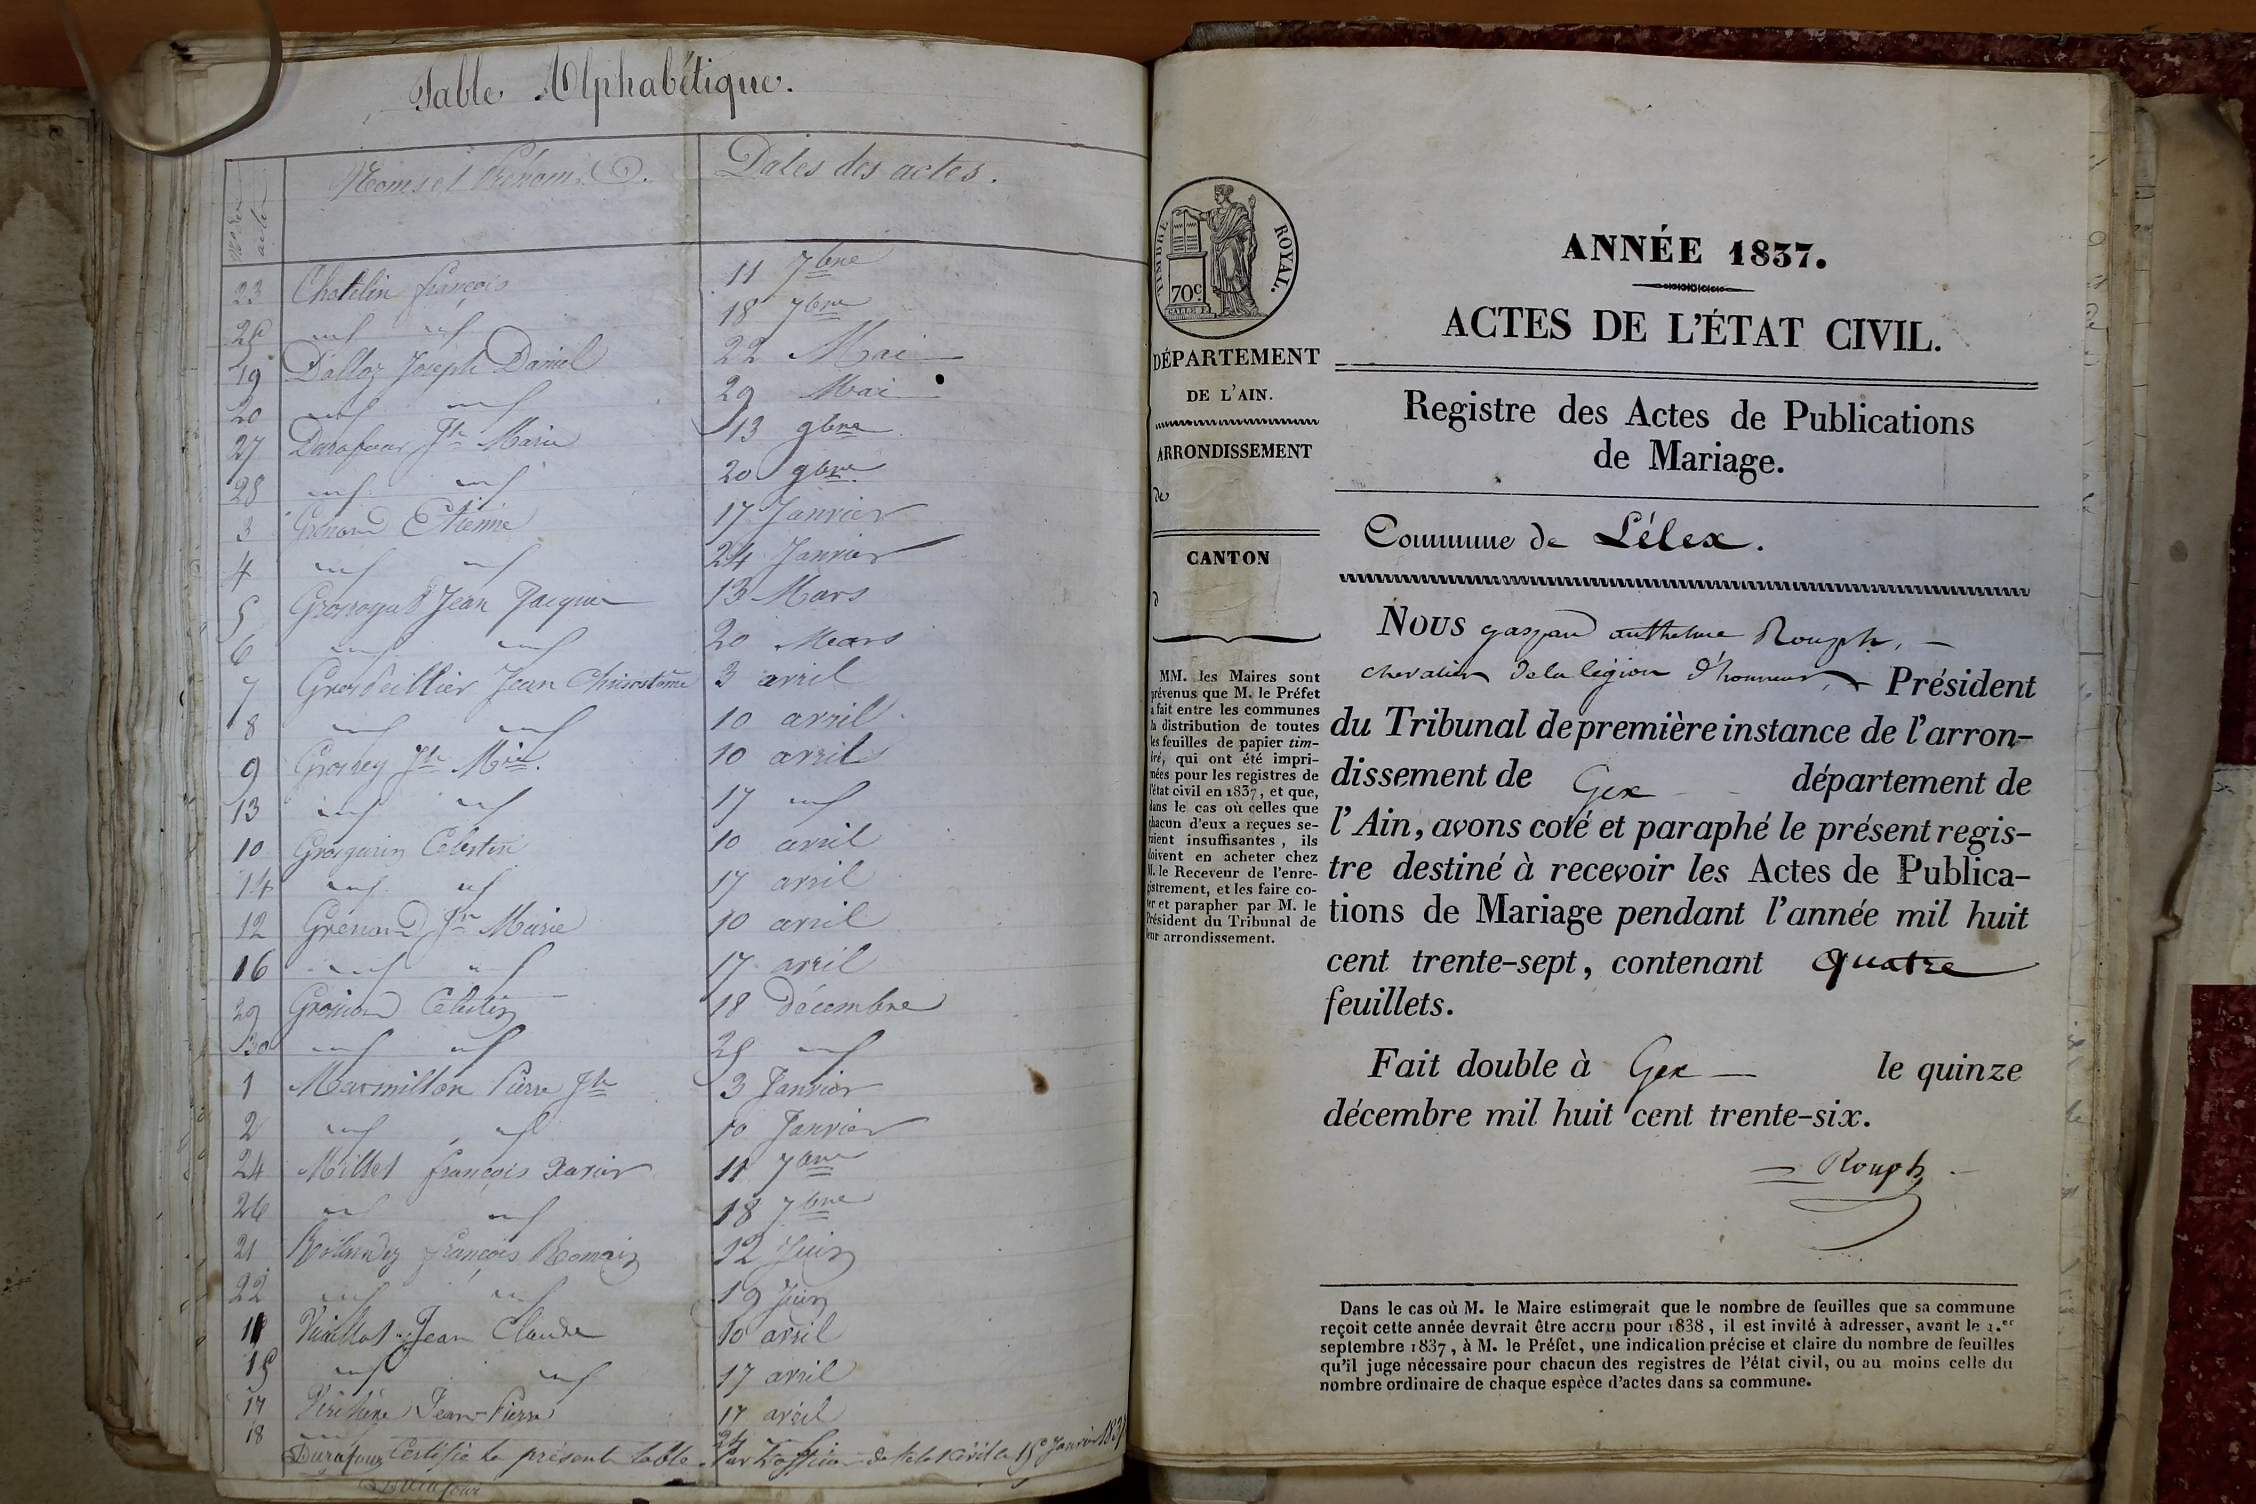 Table Alphabétique.
Nos des actes
Noms et Prénoms.
Dates des actes.
23 Chatelin françois 11 7bre
25 18 7bre
19 Dalloz Joseph Daniel 22 Mai
20 29 Mai
27 Durafour Jh Marie 13 9bre
28 20 9bre
3 Grénard Etienne 17 Janvier
4 24 Janvier
5 Grosrogat Jean Jacques 13 Mars
6 20 Mars
7 Grospellier Jean 3 avril
8 10 avril
9 Grosrey Jh Mie. 10 avril
13 17
10 Grosgurin Célestin 10 avril
14 17 avril
12 Grénard Jh Marie 10 avril
16 17 avril
29 Célestin 18 décembre
30 25
1 Marmillon Pierre Jh 3 Janvier
2 10 Janvier
24 Millet françois Xavier 11 7bre
26 18 7bre
21 françois Romain 12 Juin
22 19 Juin
11 Jean Claude 10 avril
15 17 avril
17 Jean-Pierre 17 avril
18 24
Certifié la présente table Par L'officier de l'état civil le 15 Janvier 183
Durafour
Durafour
TIMBRE ROYAL.
70c.
DÉPARTEMENT
DE L'AIN.
ARRONDISSEMENT
de
CANTON
d
MM. les Maires sont
prévenus que M. le Préfet
a fait entre les communes
la distribution de toutes
les feuilles de papier tim-
bré, qui ont été impri-
mées pour les registres de
l'état civil en 1837, et que,
dans le cas où celles que
chacun d'eux a reçues se-
raient insuffisantes, ils
doivent en acheter chez
M. le Receveur de l'enre-
gistrement, et les faire co-
ter et parapher par M. le
Président du Tribunal de
leur arrondissement.
ANNÉE 1837.
ACTES DE L'ÉTAT CIVIL.
Registre des Actes de Publications
de Mariage.
Commune de Lélex.
Nous gaspard anthelme Rouph,
chevalier de la légion d'honneur, Président
du Tribunal de première instance de l'arron-
dissement de Gex département de
l'Ain, avons coté et paraphé le présent regis-
tre destiné à recevoir les Actes de Publica-
tions de Mariage pendant l'année mil huit
cent trente-sept, contenant quatre
feuillets.
Fait double à Gex le quinze
décembre mil huit cent trente-six.
Rouph
Dans le cas où M. le Maire estimerait que le nombre de feuilles que sa commune
reçoit cette année devrait être accru pour 1838, il est invité à adresser, avant le 1.er
septembre 1837, à M. le Préfet, une indication précise et claire du nombre de feuilles
qu'il juge nécessaire pour chacun des registres de l'état civil, ou au moins celle du
nombre ordinaire de chaque espèce d'actes dans sa commune.